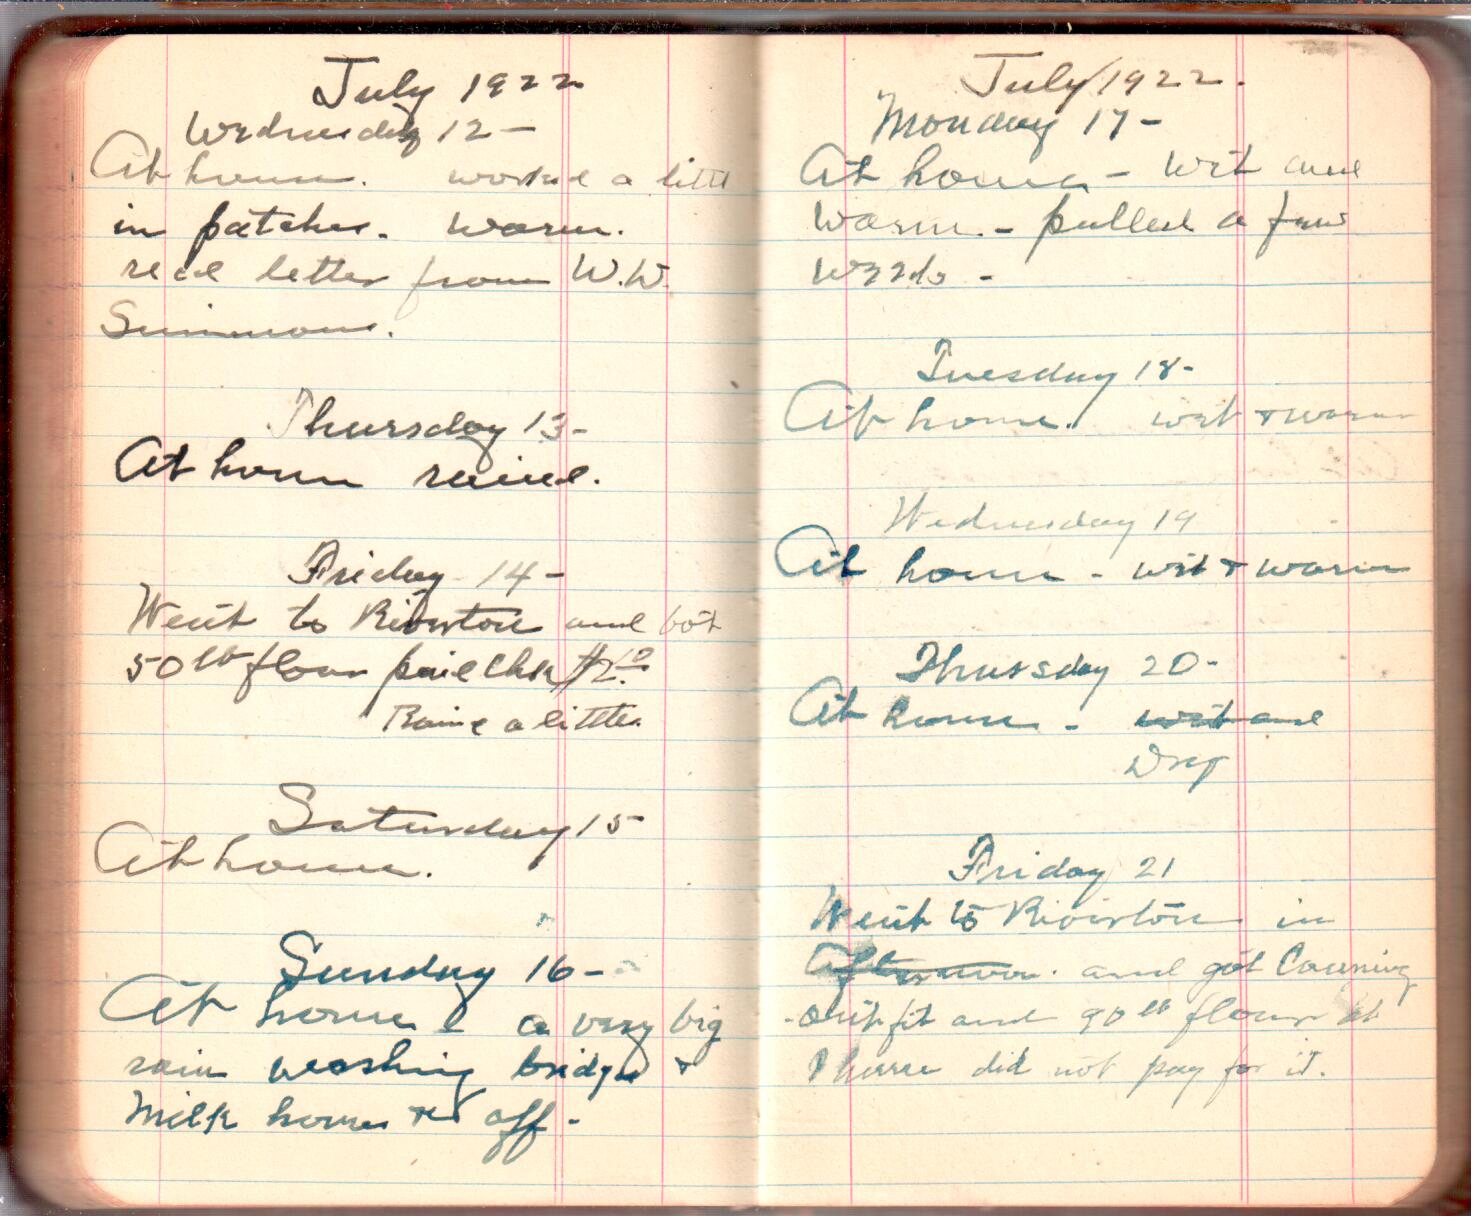 July 1922
Wednesday 12 –
At home. worked a little
in patches. Warm.
recd letter from W.W.
Simmons.
Thursday 13 –
At home rained.
Friday 14 –
Went to Riverton and bot
50 lb flour paid Chk $2.10
Raind a little.
Saturday 15
At home.
Sunday 16 –
At home – a very big
rain washing bridges &
Milk houses off –
July 1922.
Monday 17 –
At home – wet and
warm. – pulled a few
weeds –
Tuesday 18 –
At home. wet & warm
Wednesday 19
At home – wet & warm
Thursday 20 –
At home – wet and
Dry
Friday 21
Went to Riverton in
Afternoon. and got Canning
outfit and 90 lb flour
did not pay for it.